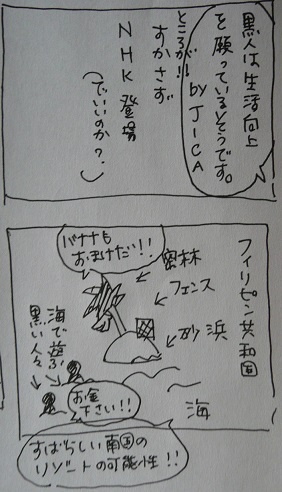 黒人は生活向上
を願っているとそうです。
by JICA
ところが!!
すかさず
NHK登場
(でいいのか?)
フィリピン共和国
密林
フェンス
砂浜
バナナも
おまけだい!!
海で遊ぶ
黒い人々
お金
下さい!!
海
すばらしい南国の
リゾートの可能性!!